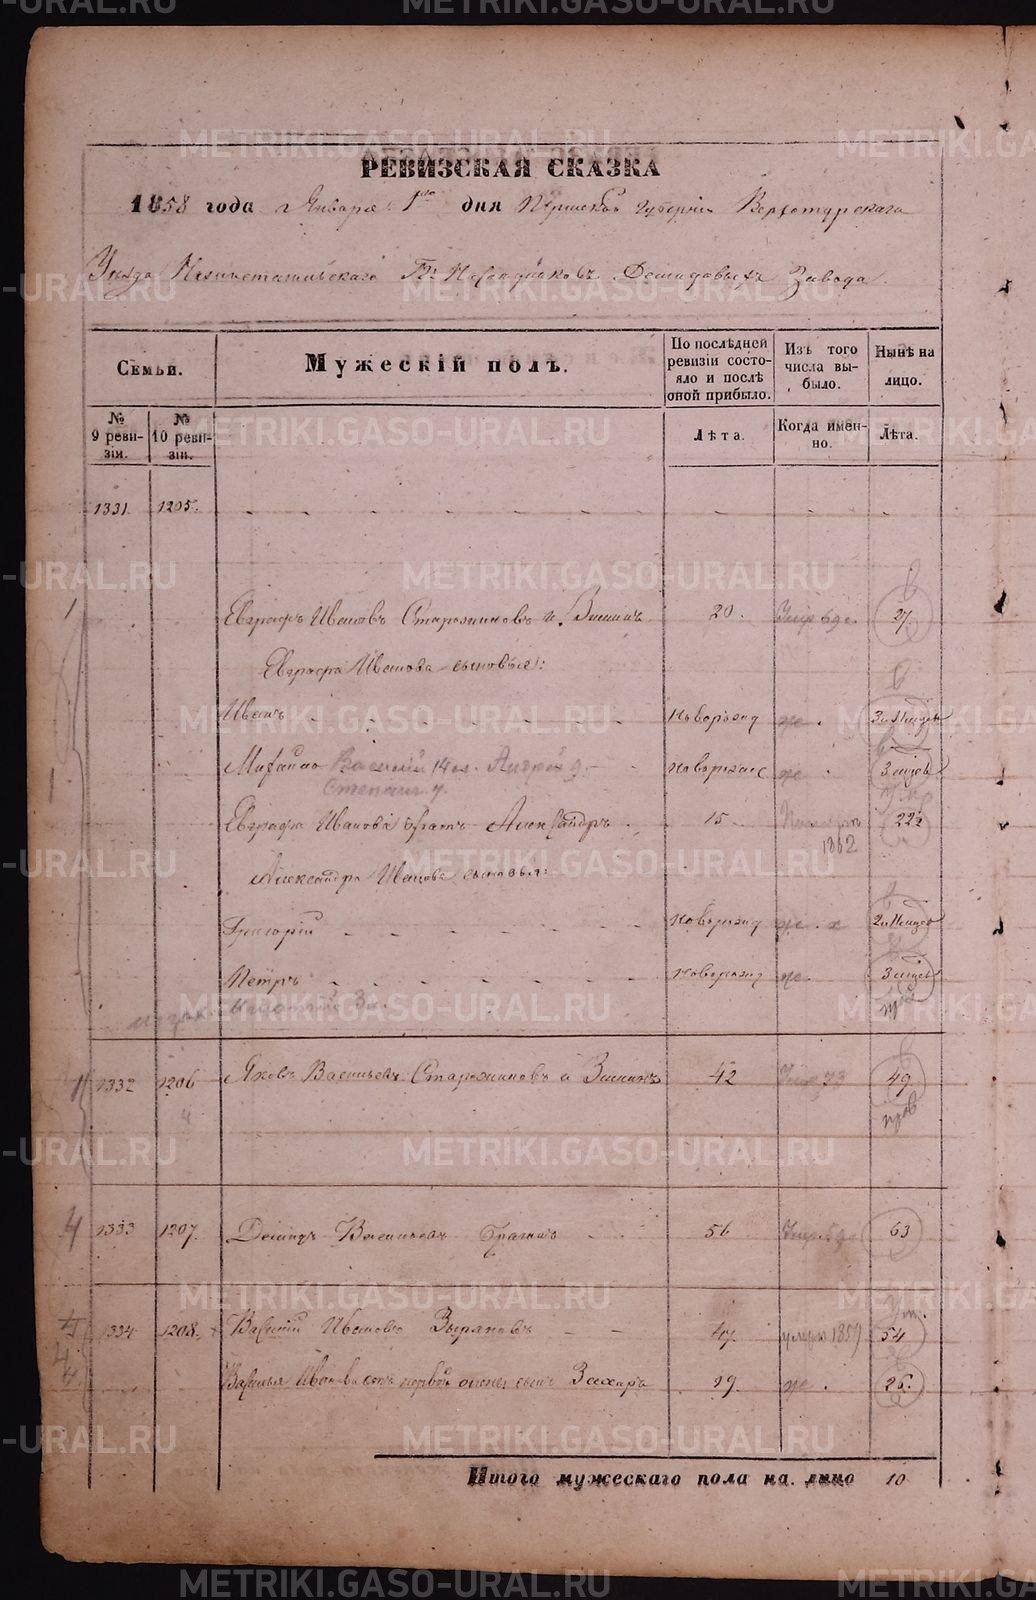 РЕВИЗСКАЯ СКАЗКА
1858 года Января 1го дня Пермской Губернии Верхотурскаго
Уезда Нижнетагильскаго Гг. Наследников Демидовых Завода.
Семьи.
Мужескій полъ.
По послѣдней ревизіи состояло и послѣ оной прибыло.
Изъ того числа выбыло.
Нынѣ на лицо.
№ 9 ревизіи.
№ 10 ревизіи.
Лѣта.
Когда именно.
Лѣта.
1331. 1205.
Евграфъ Ивановъ Старожиловъ и Зиминъ 20. 27.
Евграфа Иванова сыновья:
Иванъ Новорожд не.
Михайло Василий 14 л. Андрей 9. Новорожд не 3 мцев
Степанъ
Евграфа Иванова братъ Александръ 15 22
1862
Александра Иванова сыновья:
Григорій Новорожд не
Петръ Новорожд не. 3 мцев
1332 1206 Яковъ Васильевъ Старожиловъ и Зиминъ 42 Умер 73 49
4
4 1333 1207. Демидъ Васильевъ 56 63
1334 1208. Василій Ивановъ Зыряновъ 47 умеръ 1857 54
Василья Иванова отъ первой жены сынъ Захаръ 19. не. 26.
Итого мужескаго пола на лицо 10
METRIKI.GASO-URAL.RU